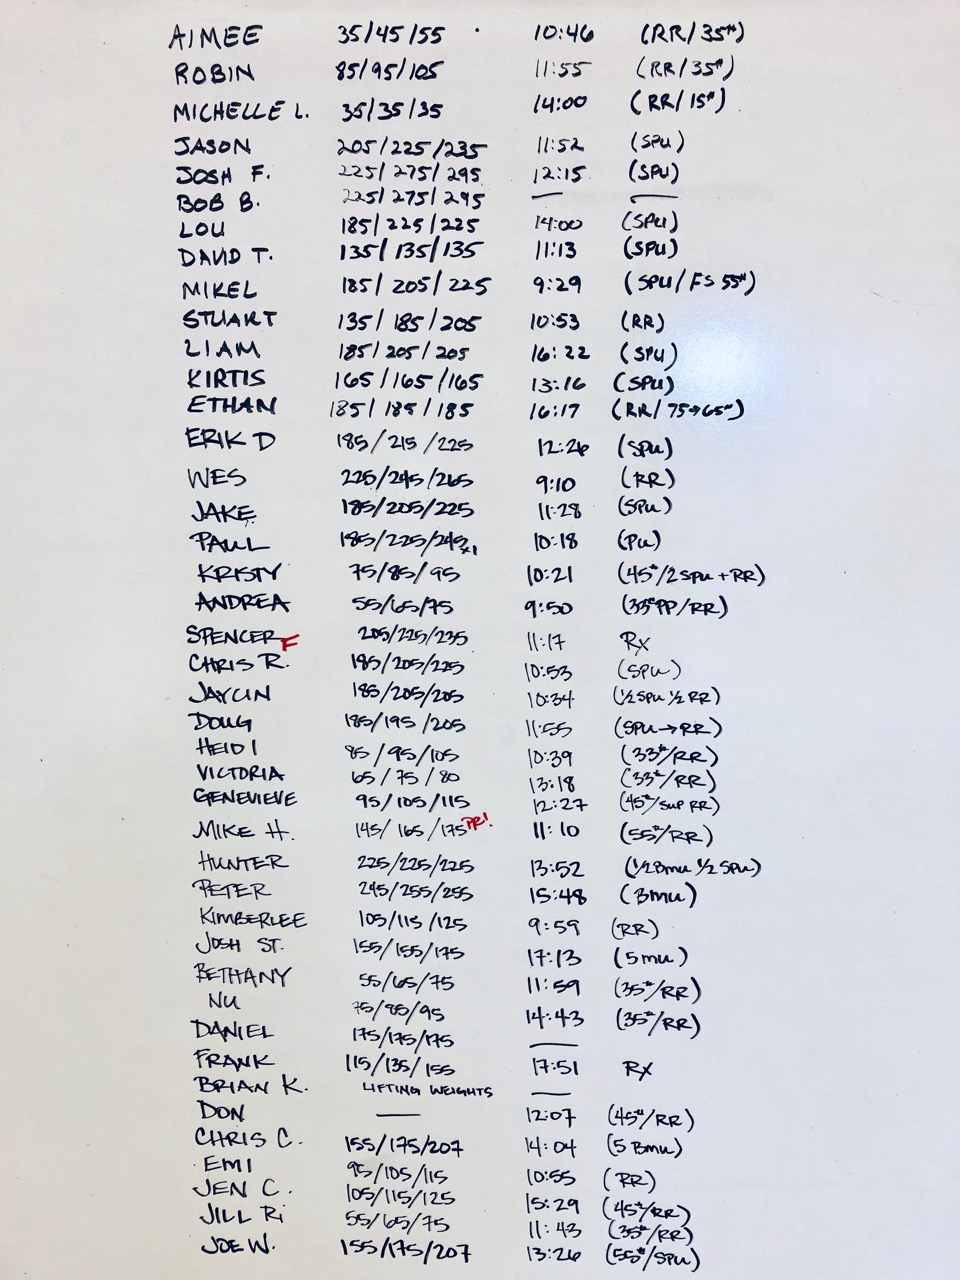 AIMEE 35/45/55 10:46 (RR/35#)
ROBIN 85/95/105 11:55 (RR/35#)
MICHELLE L. 35/35/35 14:00 (RR/15#)
JASON 205/225/235 11:52 (SPU)
JOSH F. 225/275/295 12:15 (SPU)
BOB B. 225/275/295 — —
LOU 185/225/225 14:00 (SPU)
DAVID T. 135/135/135 11:13 (SPU)
MIKEL 185/205/225 9:29 (SPU/FS 55#)
STUART 135/185/205 10:53 (RR)
LIAM 185/205/205 16:22 (SPU)
KIRTIS 165/165/165 13:16 (SPU)
ETHAN 185/185/185 16:17 (RR/75→65#)
ERIK D 185/215/225 12:26 (SPU)
WES 225/245/265 9:10 (RR)
JAKE 185/205/225 11:28 (SPU)
PAUL 185/225/245x1 10:18 (PU)
KRISTY 75/85/95 10:21 (45#/2SPU+RR)
ANDREA 55/65/75 9:50 (33#PP/RR)
SPENCER F 205/225/235 11:17 RX
CHRIS R. 185/205/225 10:53 (SPU)
JAYLIN 185/205/205 10:34 (1/2 SPU 1/2 RR)
DOUG 185/195/205 11:55 (SPU→RR)
HEIDI 85/95/105 10:39 (33#/RR)
VICTORIA 65/75/80 13:18 (33#/RR)
GENEVIEVE 95/105/115 12:27 (45#/SUP RR)
MIKE H. 145/165/175 PR! 11:10 (55#/RR)
HUNTER 225/225/225 13:52 (1/2 BMU 1/2 SPU)
PETER 245/255/255 15:48 (BMU)
KIMBERLEE 105/115/125 9:59 (RR)
JOSH ST. 155/155/175 17:13 (5MU)
BETHANY 55/65/75 11:59 (35#/RR)
NU 75/85/95 14:43 (35#/RR)
DANIEL 175/175/175 —
FRANK 115/135/155 17:51 RX
BRIAN K. LIFTING WEIGHTS —
DON — 12:07 (45#/RR)
CHRIS C. 155/175/207 14:04 (5 BMU)
EMI 95/105/115 10:55 (RR)
JEN C. 105/115/125 15:29 (45#/RR)
JILL Ri 55/65/75 11:43 (35#/RR)
JOE W. 155/175/207 13:26 (55#/SPU)